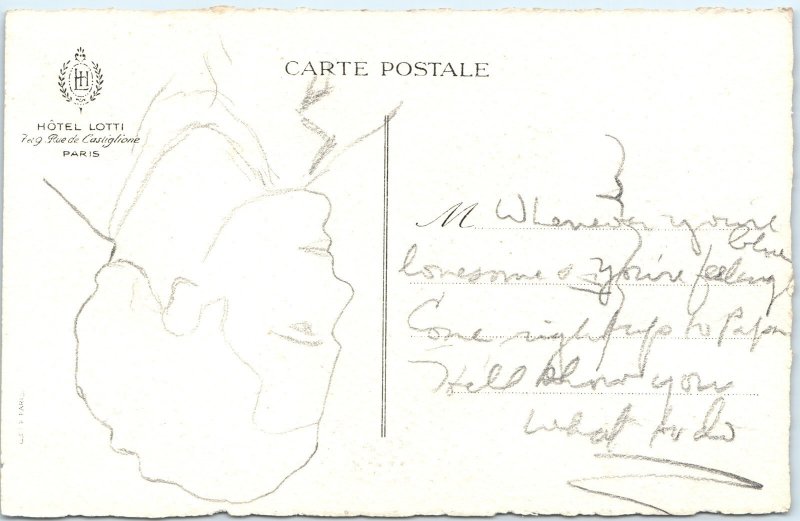 CARTE POSTALE
HÔTEL LOTTI
7 et 9. Rue de Castiglione
PARIS
M Whenever you're
lonesome & you're feeling blue
Come right up to Papa
He'll show you
What to do